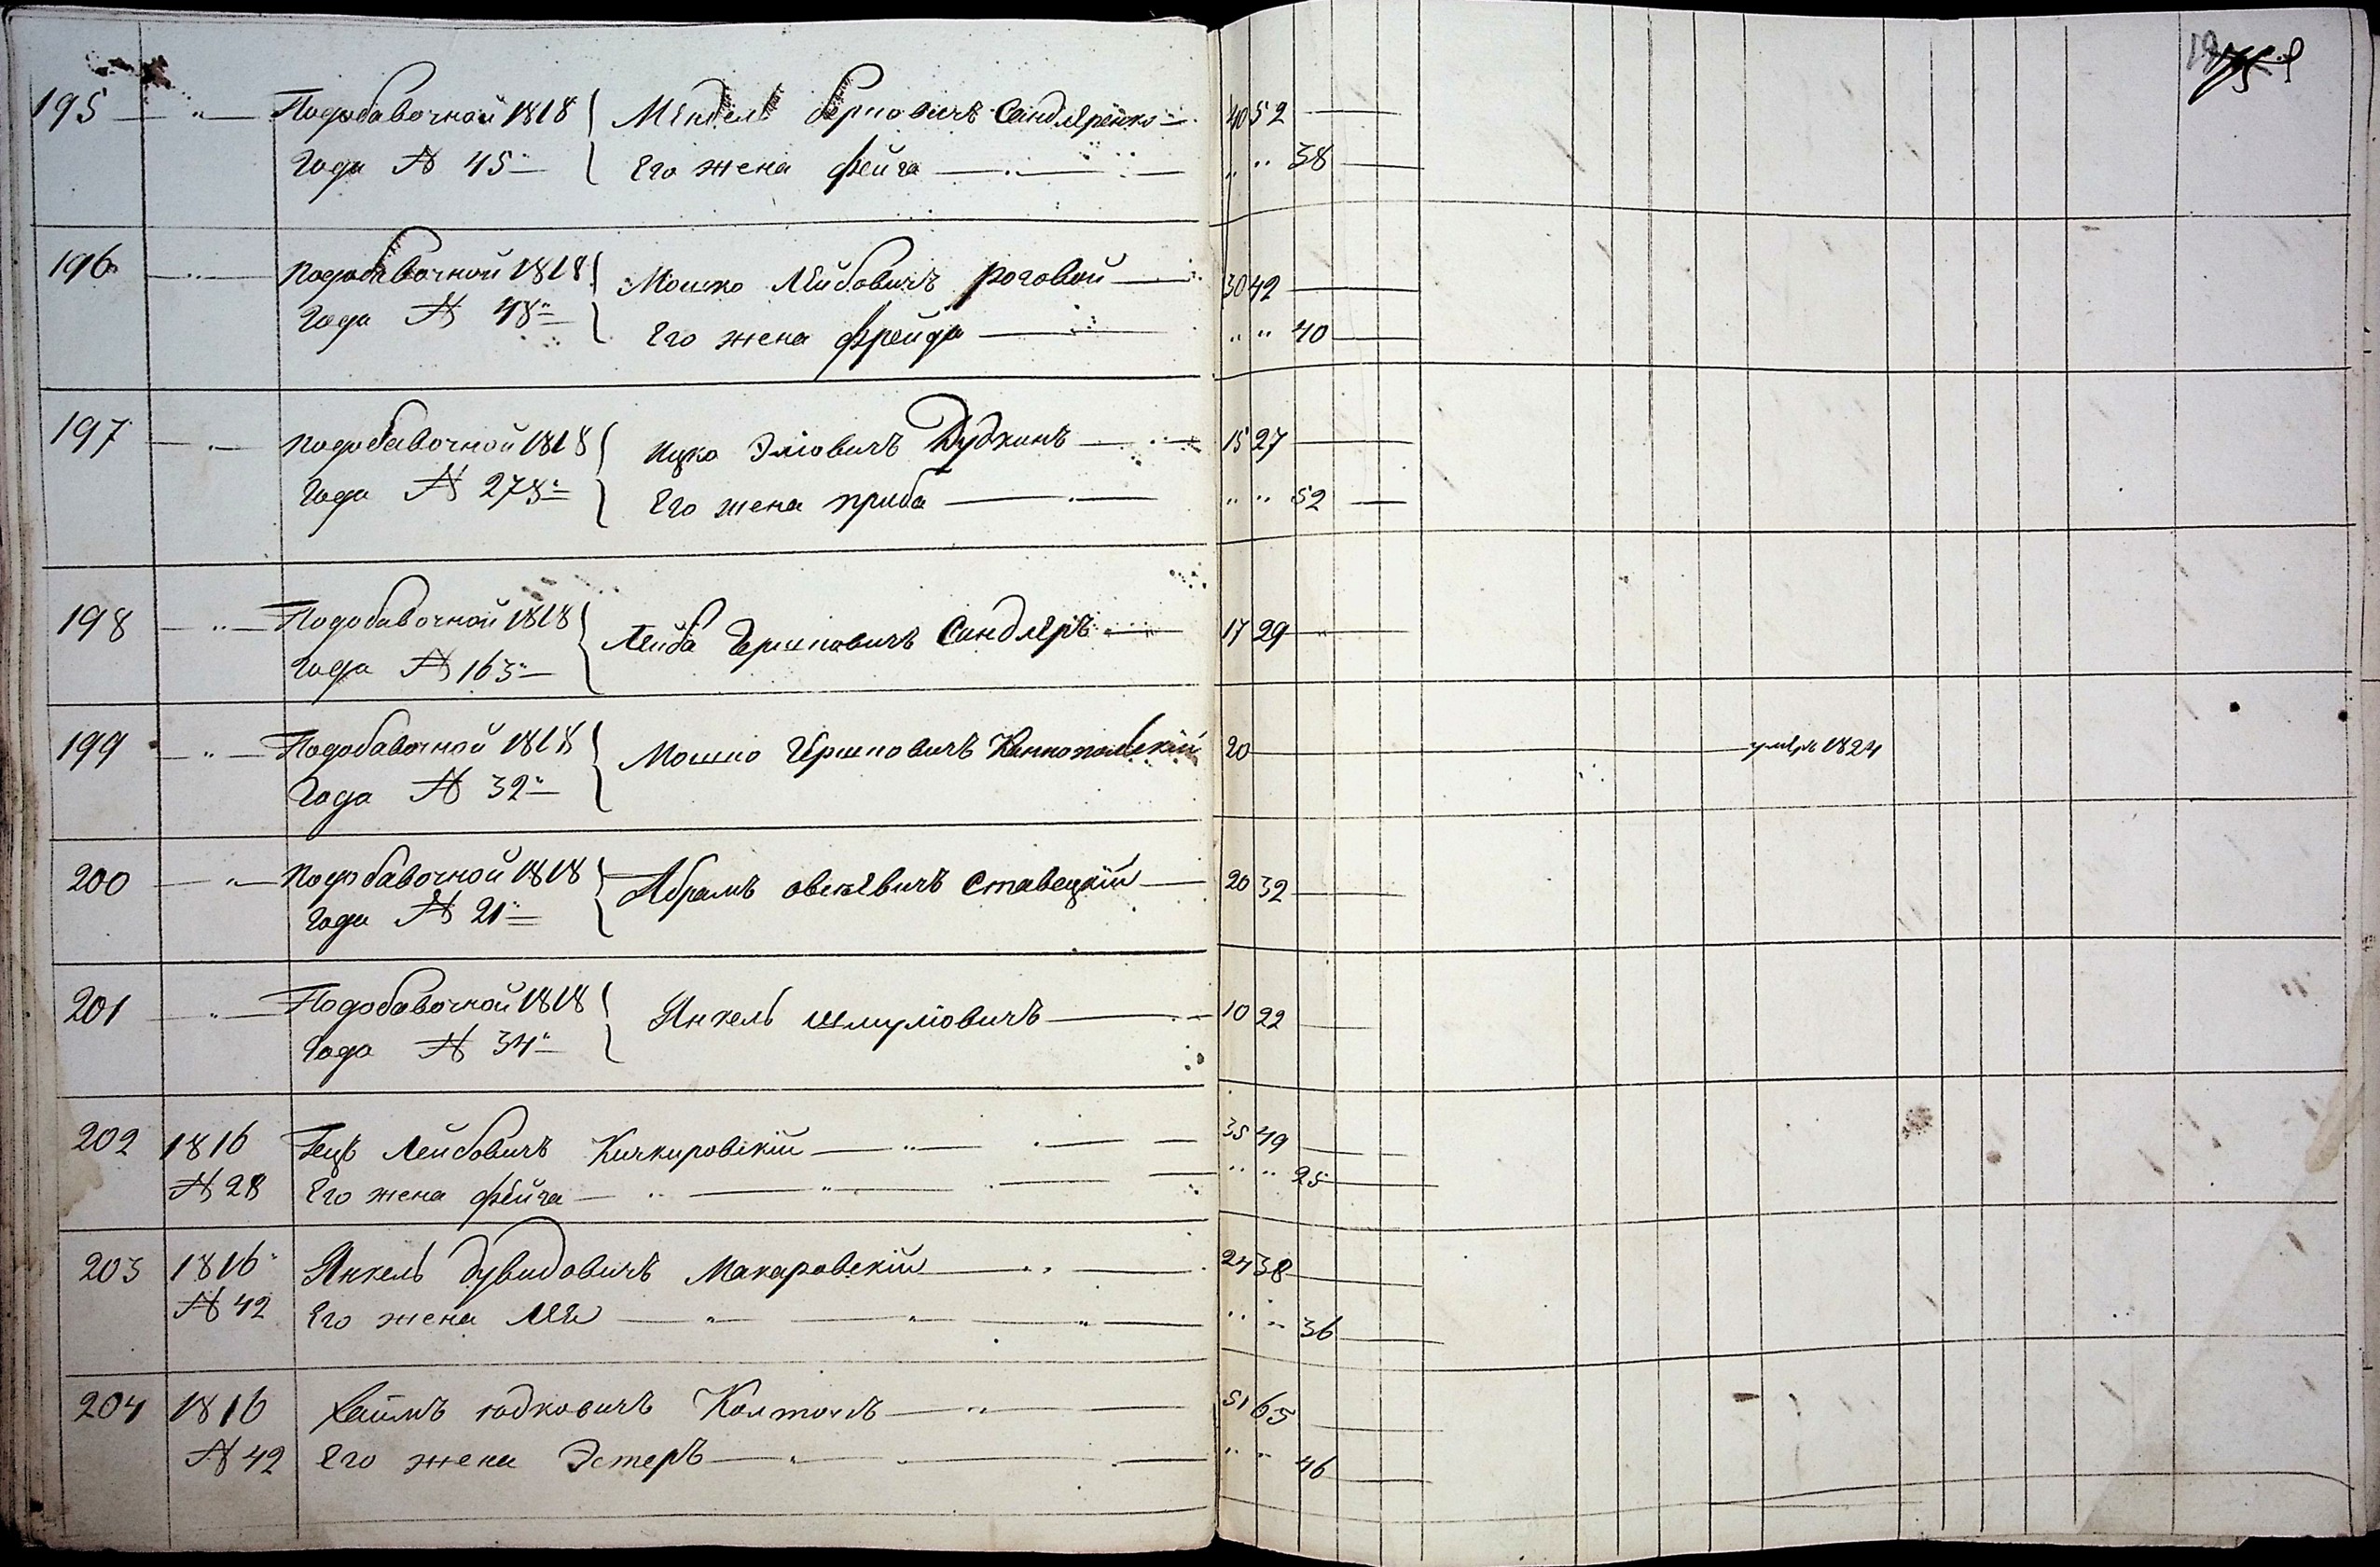 195 „ Подобавочной 1818 Мендель Берковичъ Сандляренко 40 52
Года № 45 Его жена фейга „ „ 38
196 „ Подобавочной 1818 Мошко Лейбовичъ роговой 30 42
Года № 48 Его жена фрейда „ „ 40
197 Подобавочной 1818 Ицко Элiовичъ Дудкинъ 15 27
Года № 278 Его жена „ „ 52
198 „ Подобавочной 1818 Лейба Гершковичъ Сандлеръ 17 29
Года № 163
199 „ Подобавочной 1818 Мошко Гершковичъ 20 умеръ 1824
Года № 32
200 „ Подобавочной 1818 Абрамъ овсѣевичъ Ставецкiй 20 32
Года № 21
201 „ Подобавочной 1818 Янкель шмулiовичъ 10 22
Года № 34
202 1816 Гецъ Лейбовичъ Кичкировскiй 35 49
№ 28 Его жена фейга „ „ 25
203 1816 Янкель дувидовичъ Макаровскiй 24 38
№ 42 Его жена Лея „ „ 36
204 1816 Хаимъ юдковичъ 51 65
№ 42 Его жена Эстеръ „ „ 46